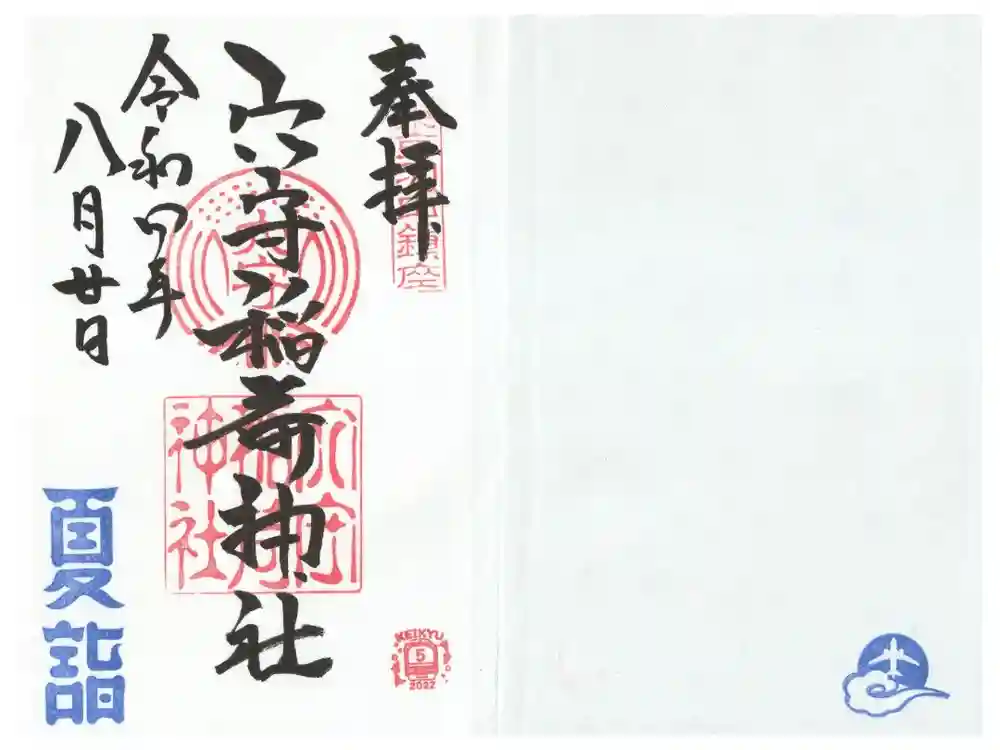 奉拝
鎮座
穴守稲荷神社
穴守
稲荷
神社
令和四年
八月廿日
夏詣
KEIKYU
5
2022